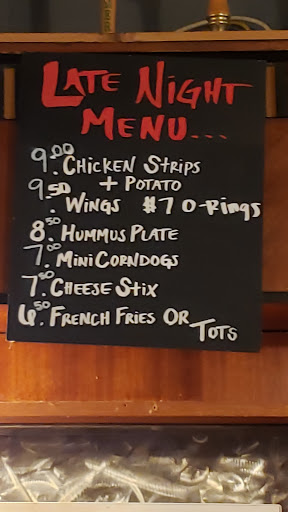 LATE NIGHT
MENU...
9.00 CHICKEN STRIPS
+ POTATO
9.50 WINGS $7 O-Rings
8.50 HUMMUS PLATE
7.00 MINI CORNDOGS
7.50 CHEESE STIX
6.50 FRENCH FRIES OR TOTS